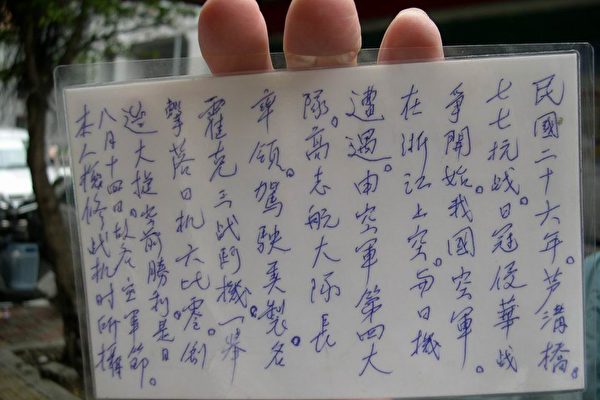 民國二十六年。芦溝橋。
七七抗战日寇侵華战
争開始。我國空軍。
在浙江上空。与日機
遭遇。由空軍第四大
隊。高志航大隊長
率領。駕駛美製。名
霍克三战鬥機一舉
擊落日机六比零。創
造大捷空前勝利是日
八月十四日。故名空軍節。
本人檢修战机时所攝